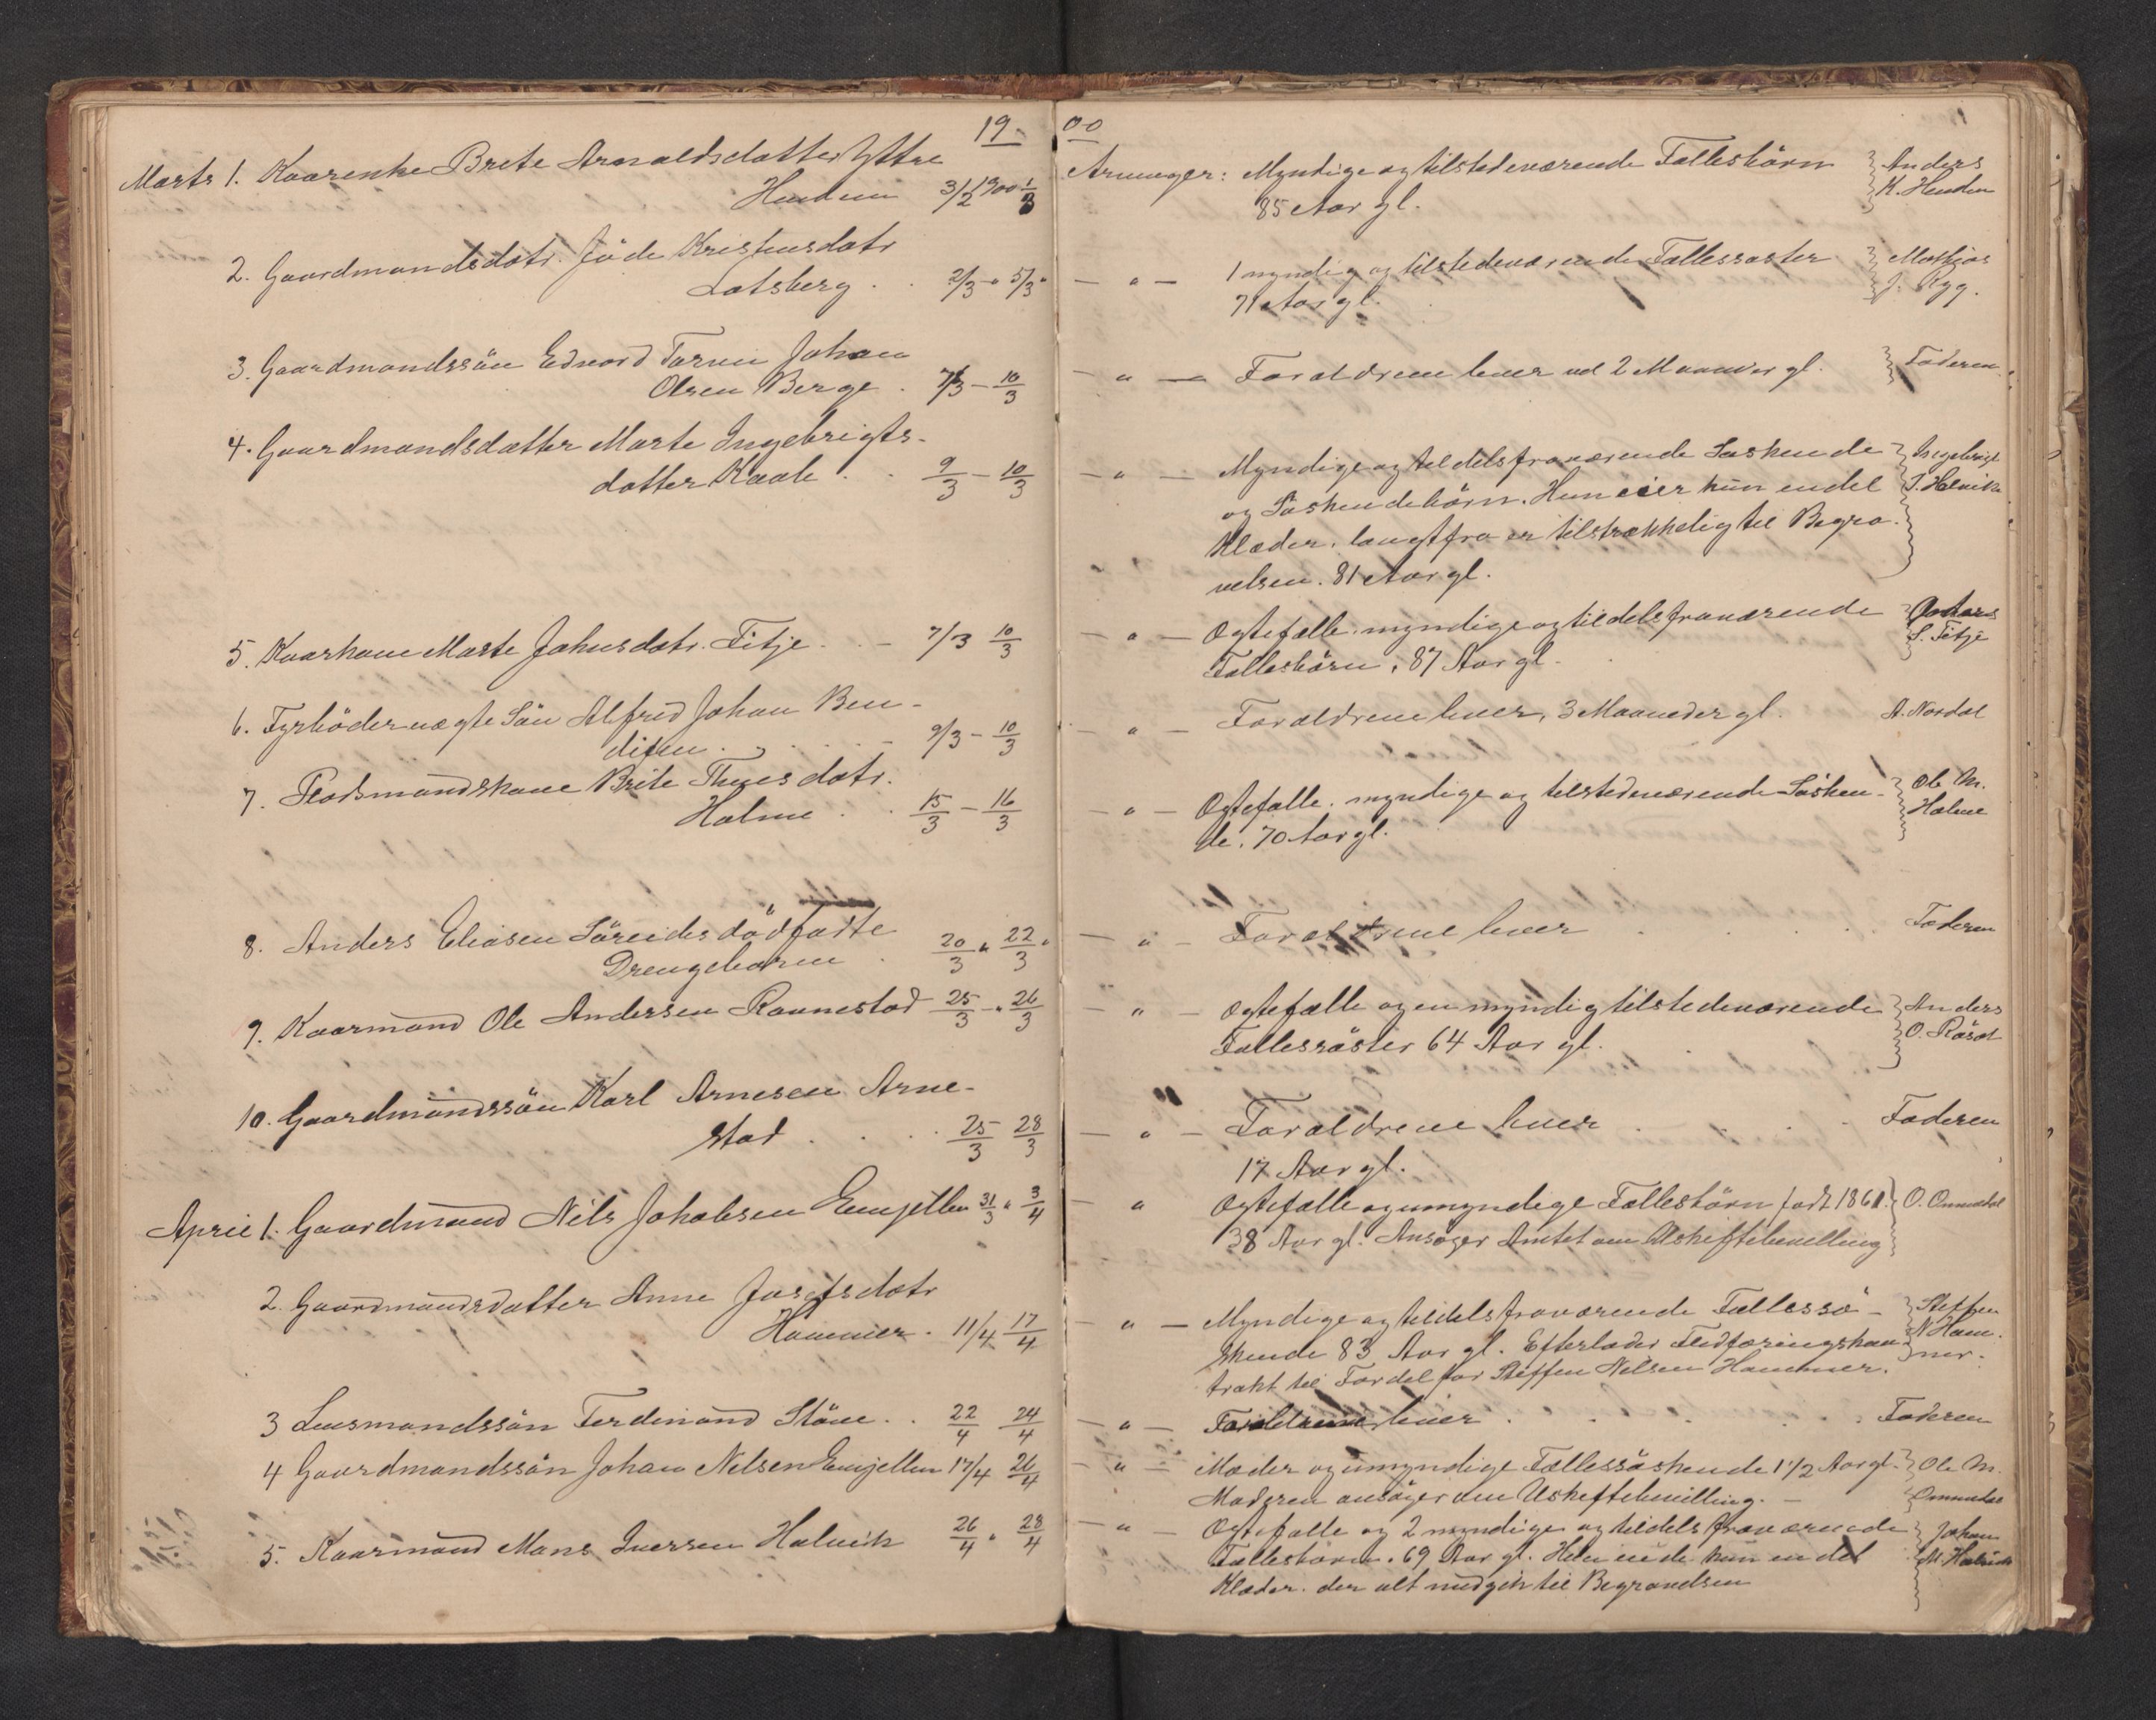 19 00
Marts 1. Kaarenke Brite Arnoldsdatter Yttre
Hendene 3/2 1900 1/3
2. Gaardmandsdatr. Jöde Kristensdatr
Lotsberg . . 2/3 " 5/3 "
3. Gaardmandssön Edvard Johan
Olsen Berge . 7/3 - 10/3
4. Gaardmandsdatter Marte Ingebrigts-
datter Kaale . . 9/3 - 10/3
5. Kaarkone Marte Johnsdatr. Fitje . . - 7/3 10/3
6. Fyrböder uægte Sön Alfred Johan Ben-
ditsen . . . . - 9/3 - 10/3
7. Pladsmandskone Brite Thuesdatr.
Holme . . 15/3 - 16/3
8. Anders Eliasen Söreides dödfödte
Drengebarn . 20/3 " 22/3 "
9. Kaarmand Ole Andersen Ravnestad 25/3 - " 26/3
10. Gaardmandssön Karl Arnesen Arne-
stad . . . . 25/3 28/3
April 1. Gaardmand Nils Jakobsen Emjellen 31/3 " 3/4
2. Gaardmandsdatter Anne Josefsdatr
Hammer . 11/4 17/4
3 Lensmandssön Ferdinand Stöve . . 22/4 24/4
4 Gaardmandssön Johan Nilsen Emjellen 17/4 26/4
5. Kaarmand Mons Iversen Holvik 26/4 " 28/4
Arvinger: Myndige og tilstedeværende Fællesbörn } Anders
85 Aar gl. K. Henden
- " - 1 myndig og tilstedeværende Fællessöster } Mathias
71 Aar gl. J. Ryg.
- " - Forældrene lever ved 2 Maaneder gl. } Faderen
- " - Myndige og tildels fraværende Söskende } Ingebrigt
og Söskendebörn. Hun eier kun endel J. Holvik
Klæder, langt fra er tilstrækkelig til Begra-
velsen. 81 Aar gl.
- " - Ægtefælle, myndige og tildels fraværende } Anders
Fællesbörn, 87 Aar gl. S. Fitje
- " - Forældrene lever, 3 Maaneder gl. A. Nordal
- " - Ægtefælle, myndige og tilstedeværende Sösken- } Ole M.
de, 70 Aar gl. Holme
- " - Forældrene lever . . . . . Faderen
- " - Ægtefælle og en myndig tilstedeværende } Anders
Fællessöster 64 Aar gl. O.
- " - Forældrene lever . . . . Faderen
17 Aar gl.
- " Ægtefælle og umyndige Fællesbörn født 1861. } O. Ommedal
38 Aar gl. Ansöger Amtet om Uskiftebevilling
- " - Myndige og tildels fraværende Fællessö- } Steffen
skende 83 Aar gl. Efterlader Fledföringskon- N Ham-
trakt til Fordel for Steffen Nilsen Hammer. mer.
- " - Forældrene lever . . . . . Faderen
- " - Moder og umyndige Fællessöskende 1 1/2 Aar gl. } Ole M.
Moderen ansöger om Uskiftebevilling. - Ommedal
- " - Ægtefælle og 2 myndige og tildels fraværende } Johan
Fællesbörn. 69 Aar gl. Han eiede kun endel M. Holvik
Klæder. der alt medgik til Begravelsen